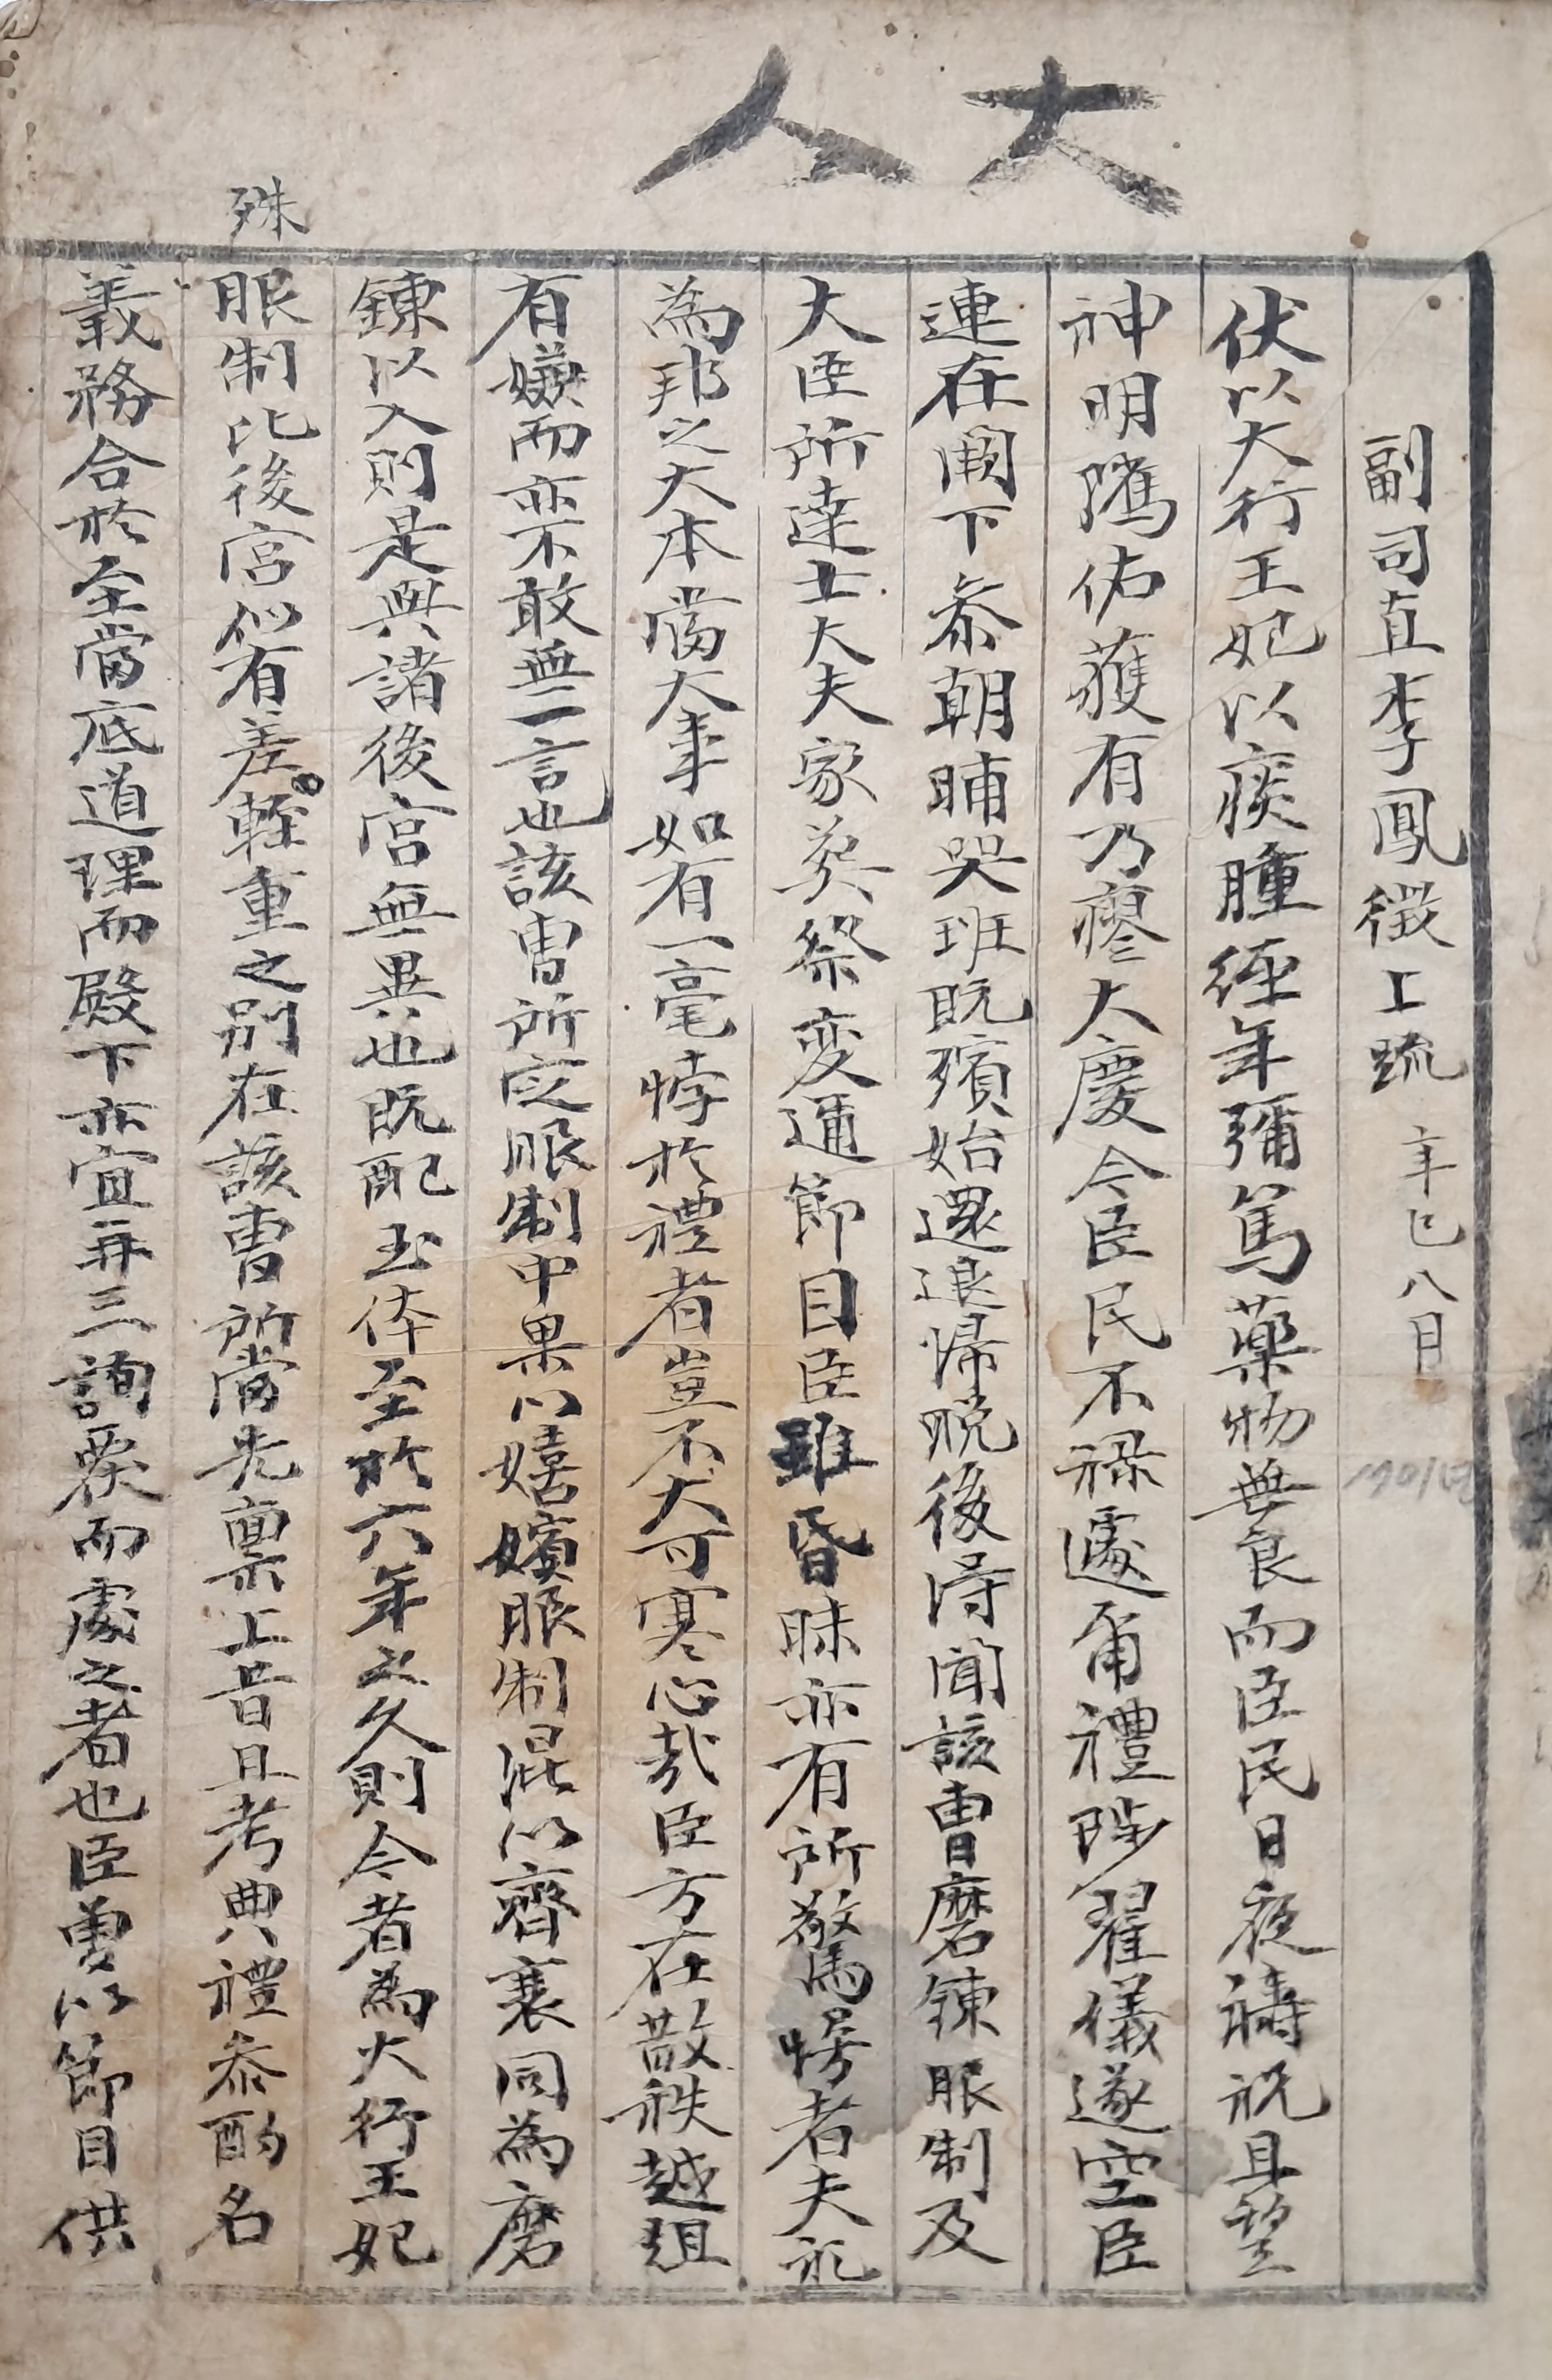 大人
副司直李鳳徵上疏 辛巳八月 1701년
伏以大行王妃以痰腫經年彌篤藥物無良而臣民日夜禱祝且望
神明隲佑獲有乃瘳大慶今臣民不祿遽爾禮陟翟儀遂空臣
連在闕下叅朝晡哭班旣殯始還退歸晩後得聞該曹磨鍊服制及
大臣所達士大夫家葬祭変通節目臣雖昏昧亦有所驚愕者夫礼
為邦之大本當大事如有一毫悖於禮者豈不大可寒心哉臣方在散秩越俎
有嫌而亦不敢無一言也該曹所定服制中果以嬉嬪服制混以齊衰同為磨
鍊以入則是與諸後宮無異也旣配玉体至於六年之久則今者為大行王妃
殊
服制比後宮似有差。輕重之別在該曹所當先稟上旨且考典禮叅酌名
義務合於至當底道理而殿下亦宜再三詢察而處之者也臣曾以節目供